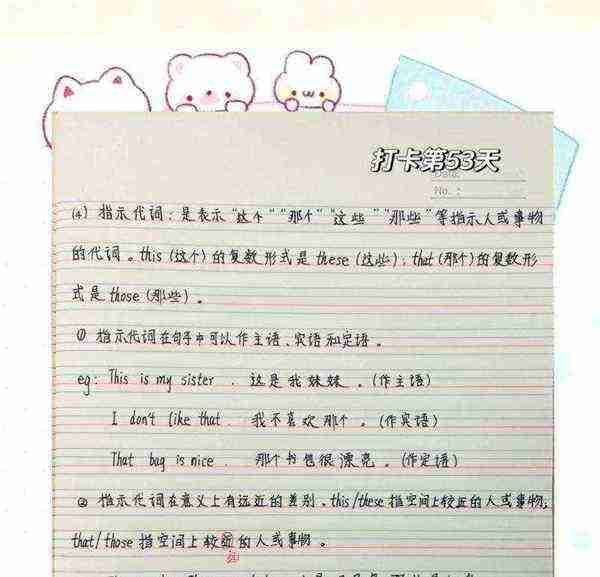 打卡第53天
Date:
No.:
(4) 指示代词：是表示“这个”“那个”“这些”“那些”等指示人或事物
的代词。this (这个) 的复数形式是 these (这些)；that (那个) 的复数形
式是 those (那些)。
① 指示代词在句子中可以作主语、宾语和定语。
eg: This is my sister. 这是我妹妹。(作主语)
I don't like that. 我不喜欢那个。(作宾语)
That bag is nice. 那个书包很漂亮。(作定语)
② 指示代词在意义上有远近的差别，this/these 指空间上较近的人或事物；
that/those 指空间上较远的人或事物。